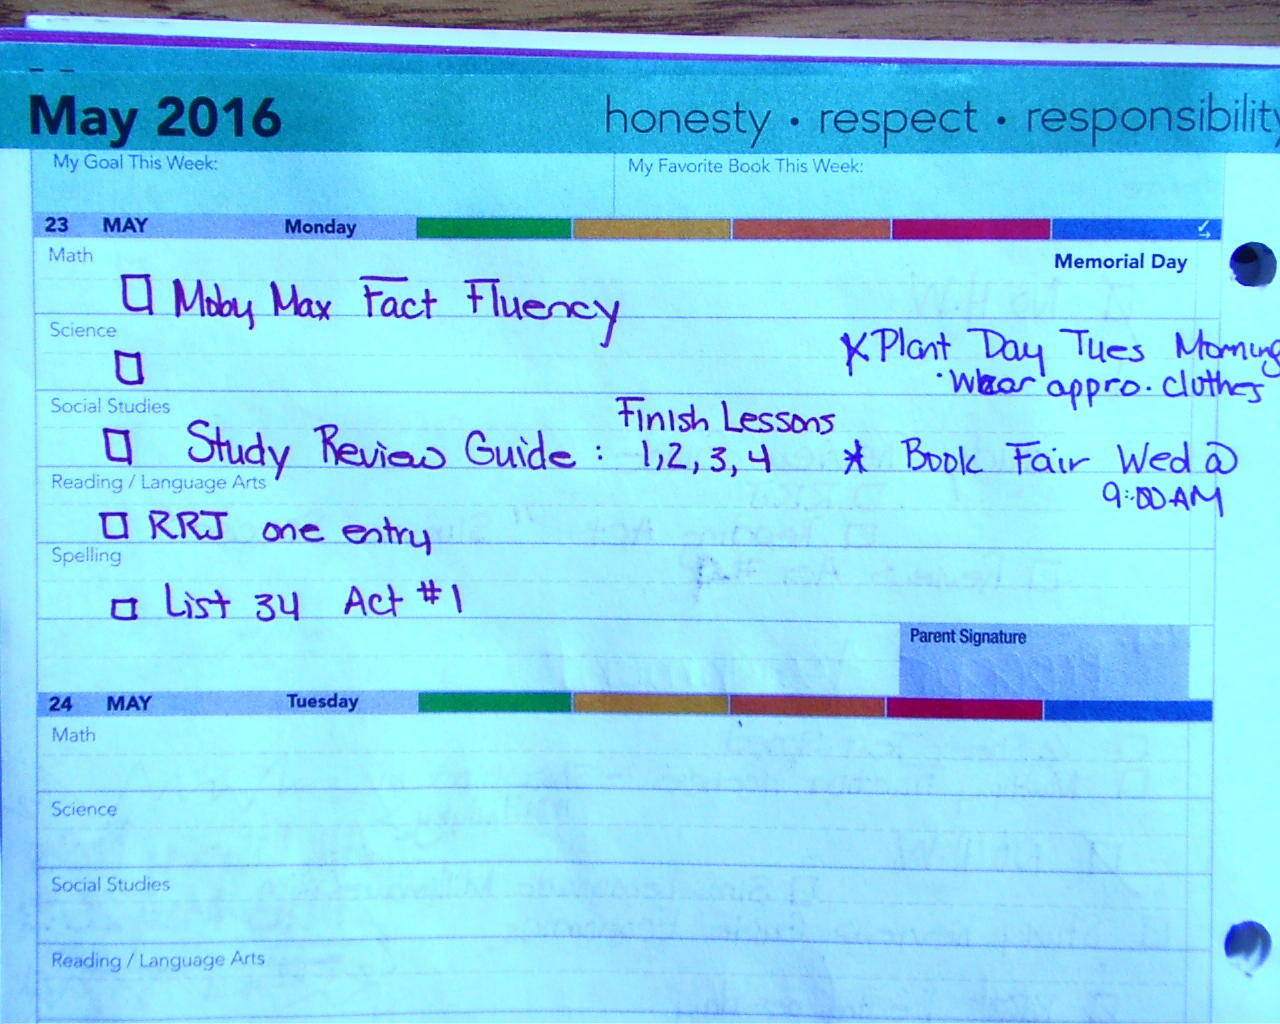 May 2016
honesty • respect • responsibility
My Goal This Week:
My Favorite Book This Week:
23 MAY Monday
Math
Memorial Day
Moby Max Fact Fluency
Science
*Plant Day Tues Morning
• Wear appro. clothes
Social Studies
Finish Lessons
Study Review Guide : 1,2,3,4
* Book Fair Wed @
9:00 AM
Reading / Language Arts
RRJ one entry
Spelling
List 34 Act #1
Parent Signature
24 MAY Tuesday
Math
Science
Social Studies
Reading / Language Arts